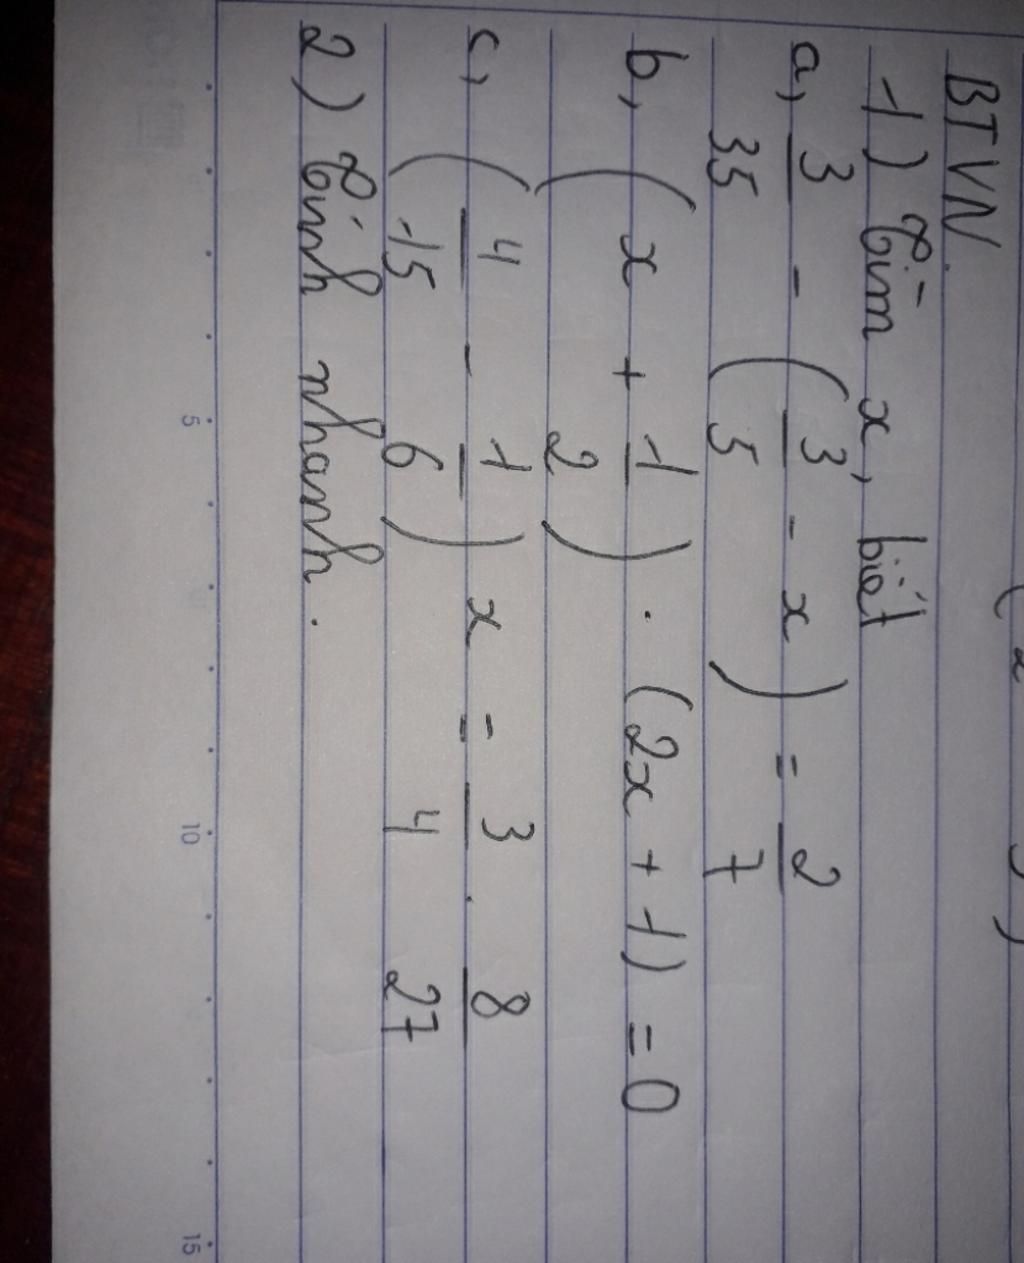 BTVN.
1) Tìm x, biết
a, 3/35 - (3/5 - x) = 2/7
b, (x + 1/2) . (2x + 1) = 0
c, (4/15 - 1/6) x = 3/4 . 8/27
2) Tính nhanh.
5 10 15